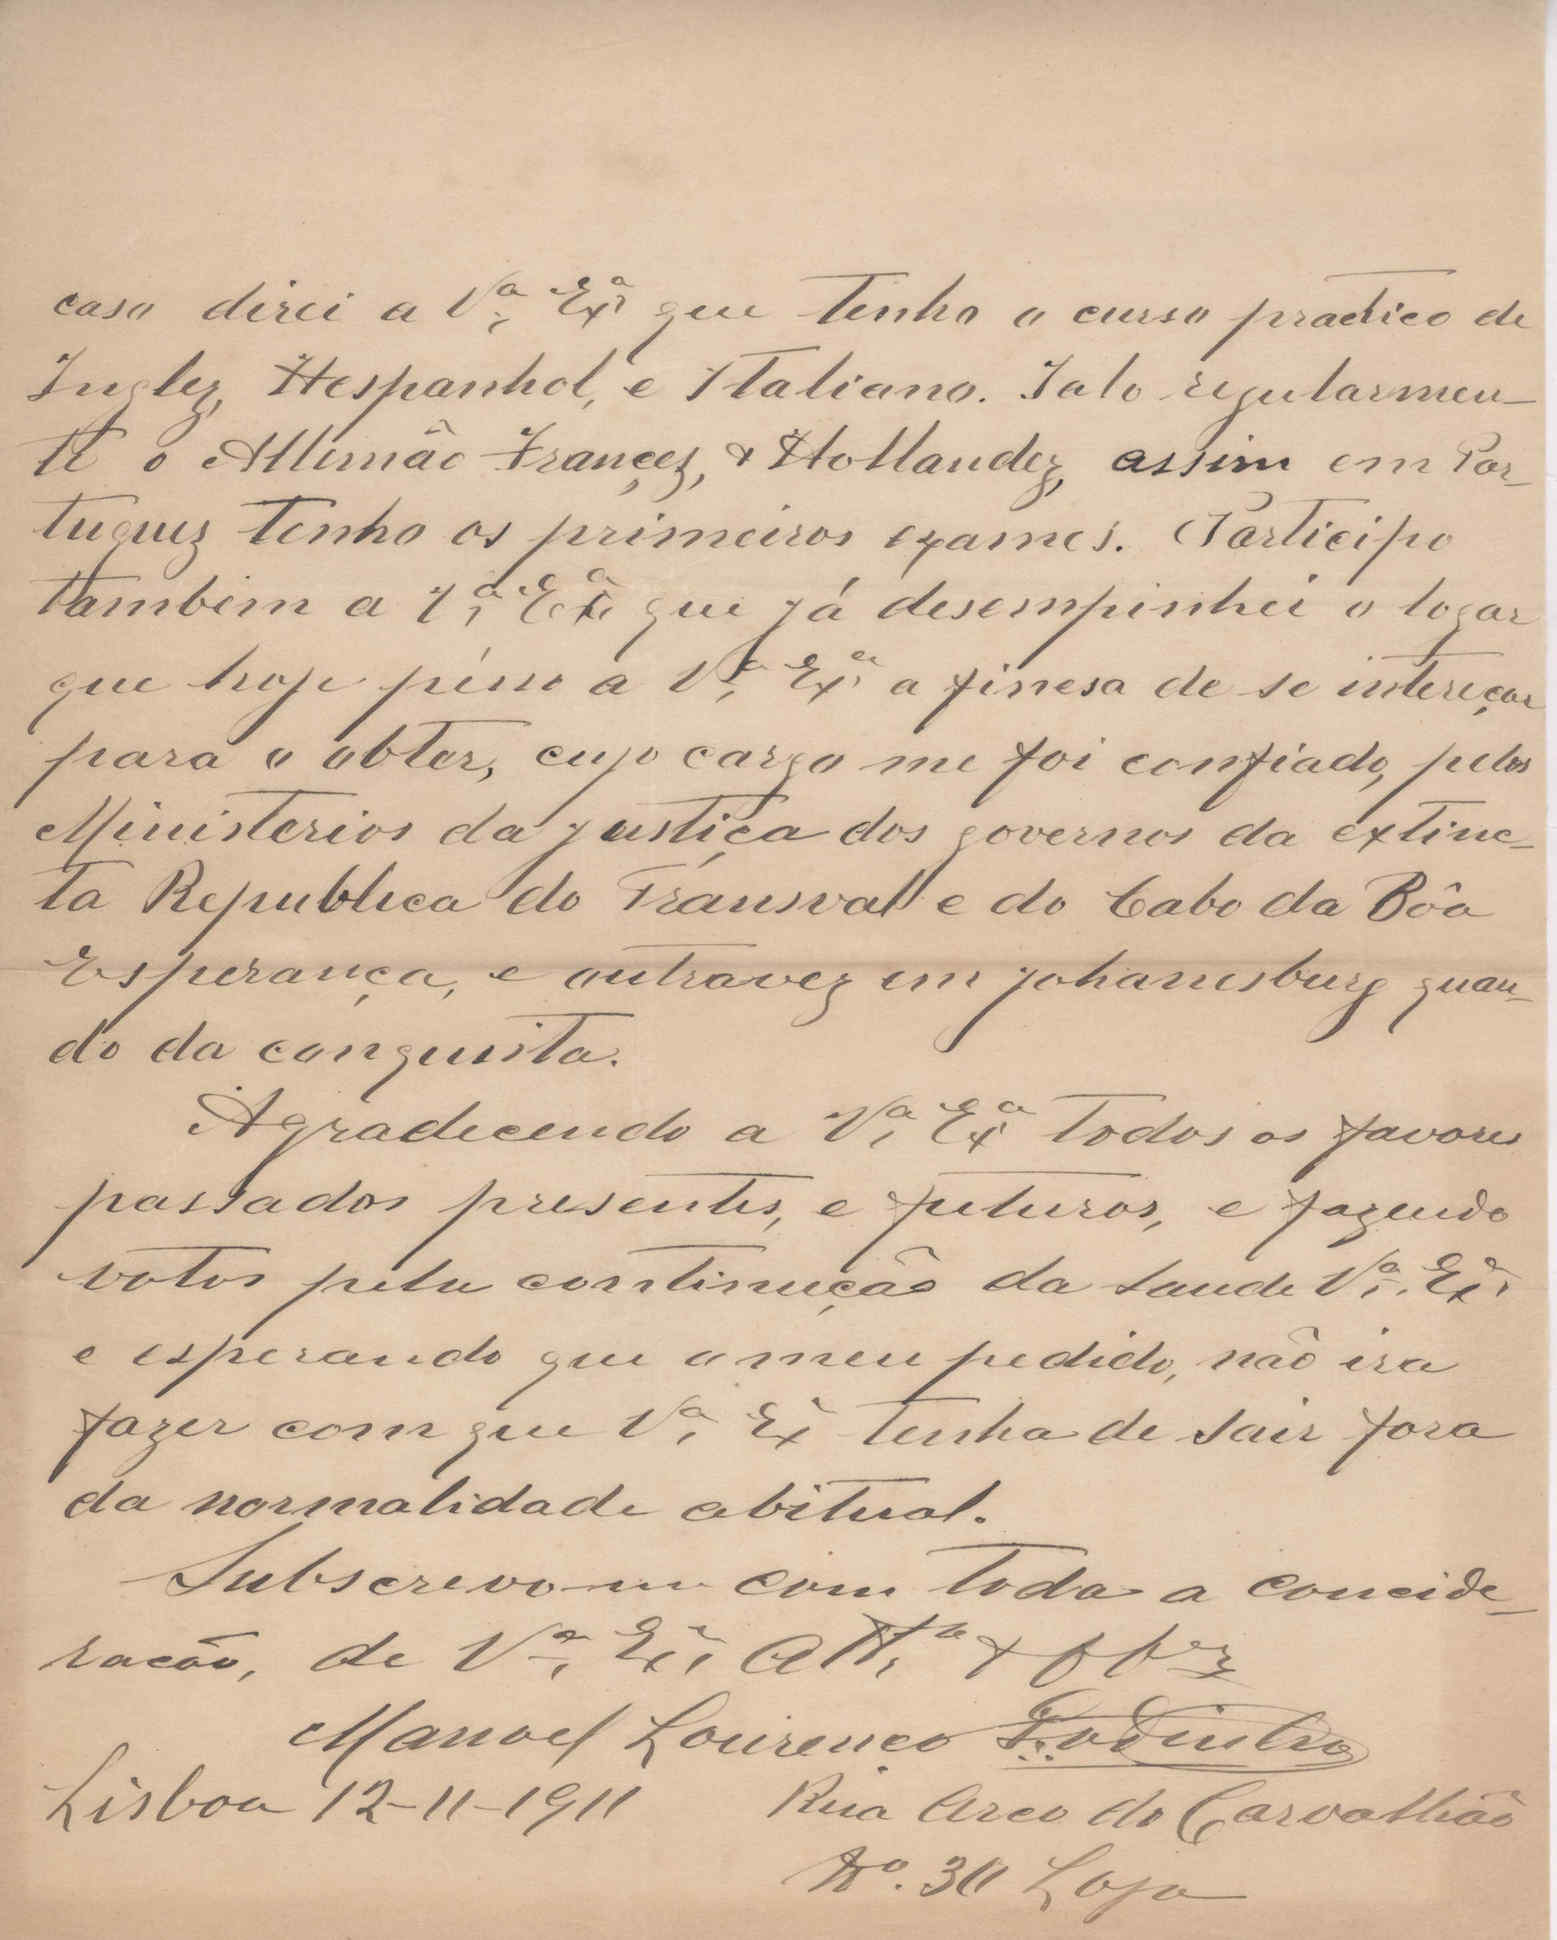 caso direi a Vª Exª que tenho o curso practico de
Inglez, Hespanhol, e Italiano. Falo regularmen-
te o Allemão Françez, & Hollandez, assim em Por-
tuguez tenho os primeiros exames. Participo
tambem a Vª Exª que já desempinhei o logar
que hoje péço a Vª Exª a finesa de se intereçar
para o obter, cujo cargo me foi confiado, pelos
Ministerios da justiça dos governos da extinc-
ta Republica do Transval e do Cabo da Bôa
Esperança, e outravez em johannesburg quan-
do da conquista.
Agradecendo a Vª Exª todos os favores
passados presentes, e futuros, e fazendo
votos pela continução da saude Vª Exª
e esperando que o meu pedido, não ira
fazer com que Vª Ex tenha de sair fora
da normalidade abitual.
Subscrevo-me com toda a concide-
racão, de Vª Exª Attº &
Manoel Lourenco Godinho
Lisboa 12-11-1911 Rua Arco do Carvalhão
Nº. 311 Loja